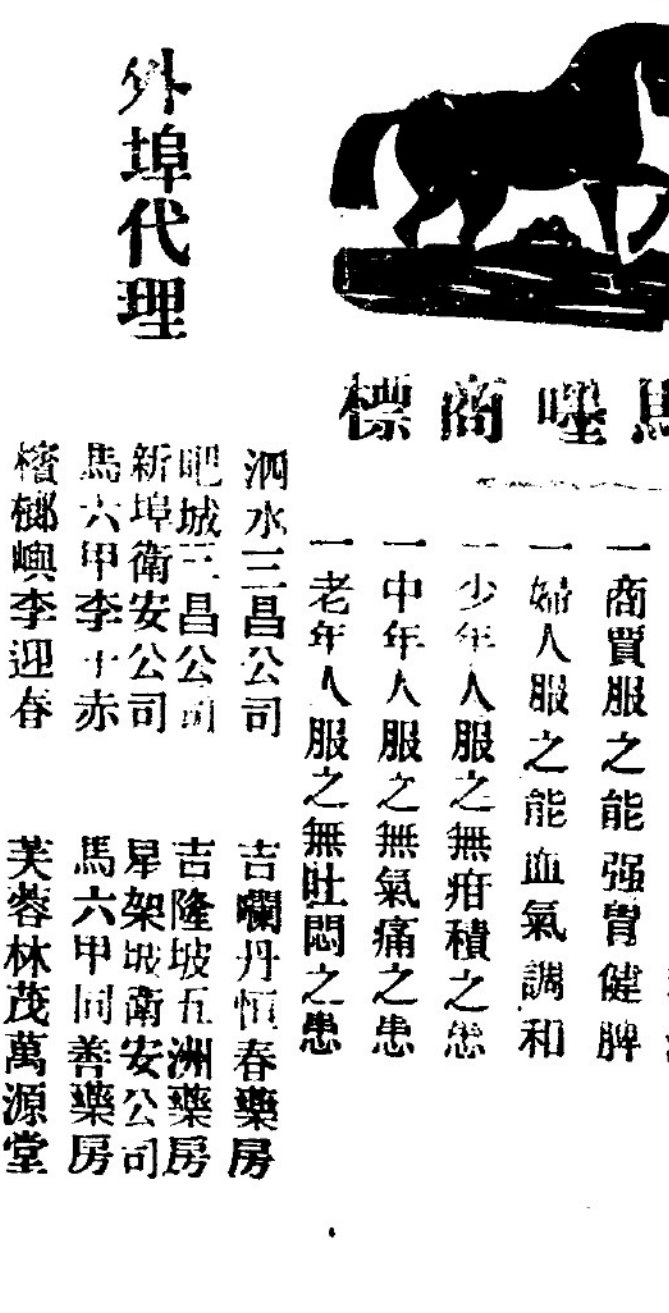 馬嚜商標
一商賈服之能强胃健脾
一婦人服之能血氣調和
一少年人服之無疳積之患
一中年人服之無氣痛之患
一老年人服之無吐悶之患
外埠代理
泗水三昌公司
吧城三昌公司
新埠衛安公司
馬六甲李十赤
檳榔嶼李迎春
吉囒丹恒春藥房
吉隆坡五洲藥房
星架坡衛安公司
馬六甲同善藥房
芙蓉林茂萬源堂